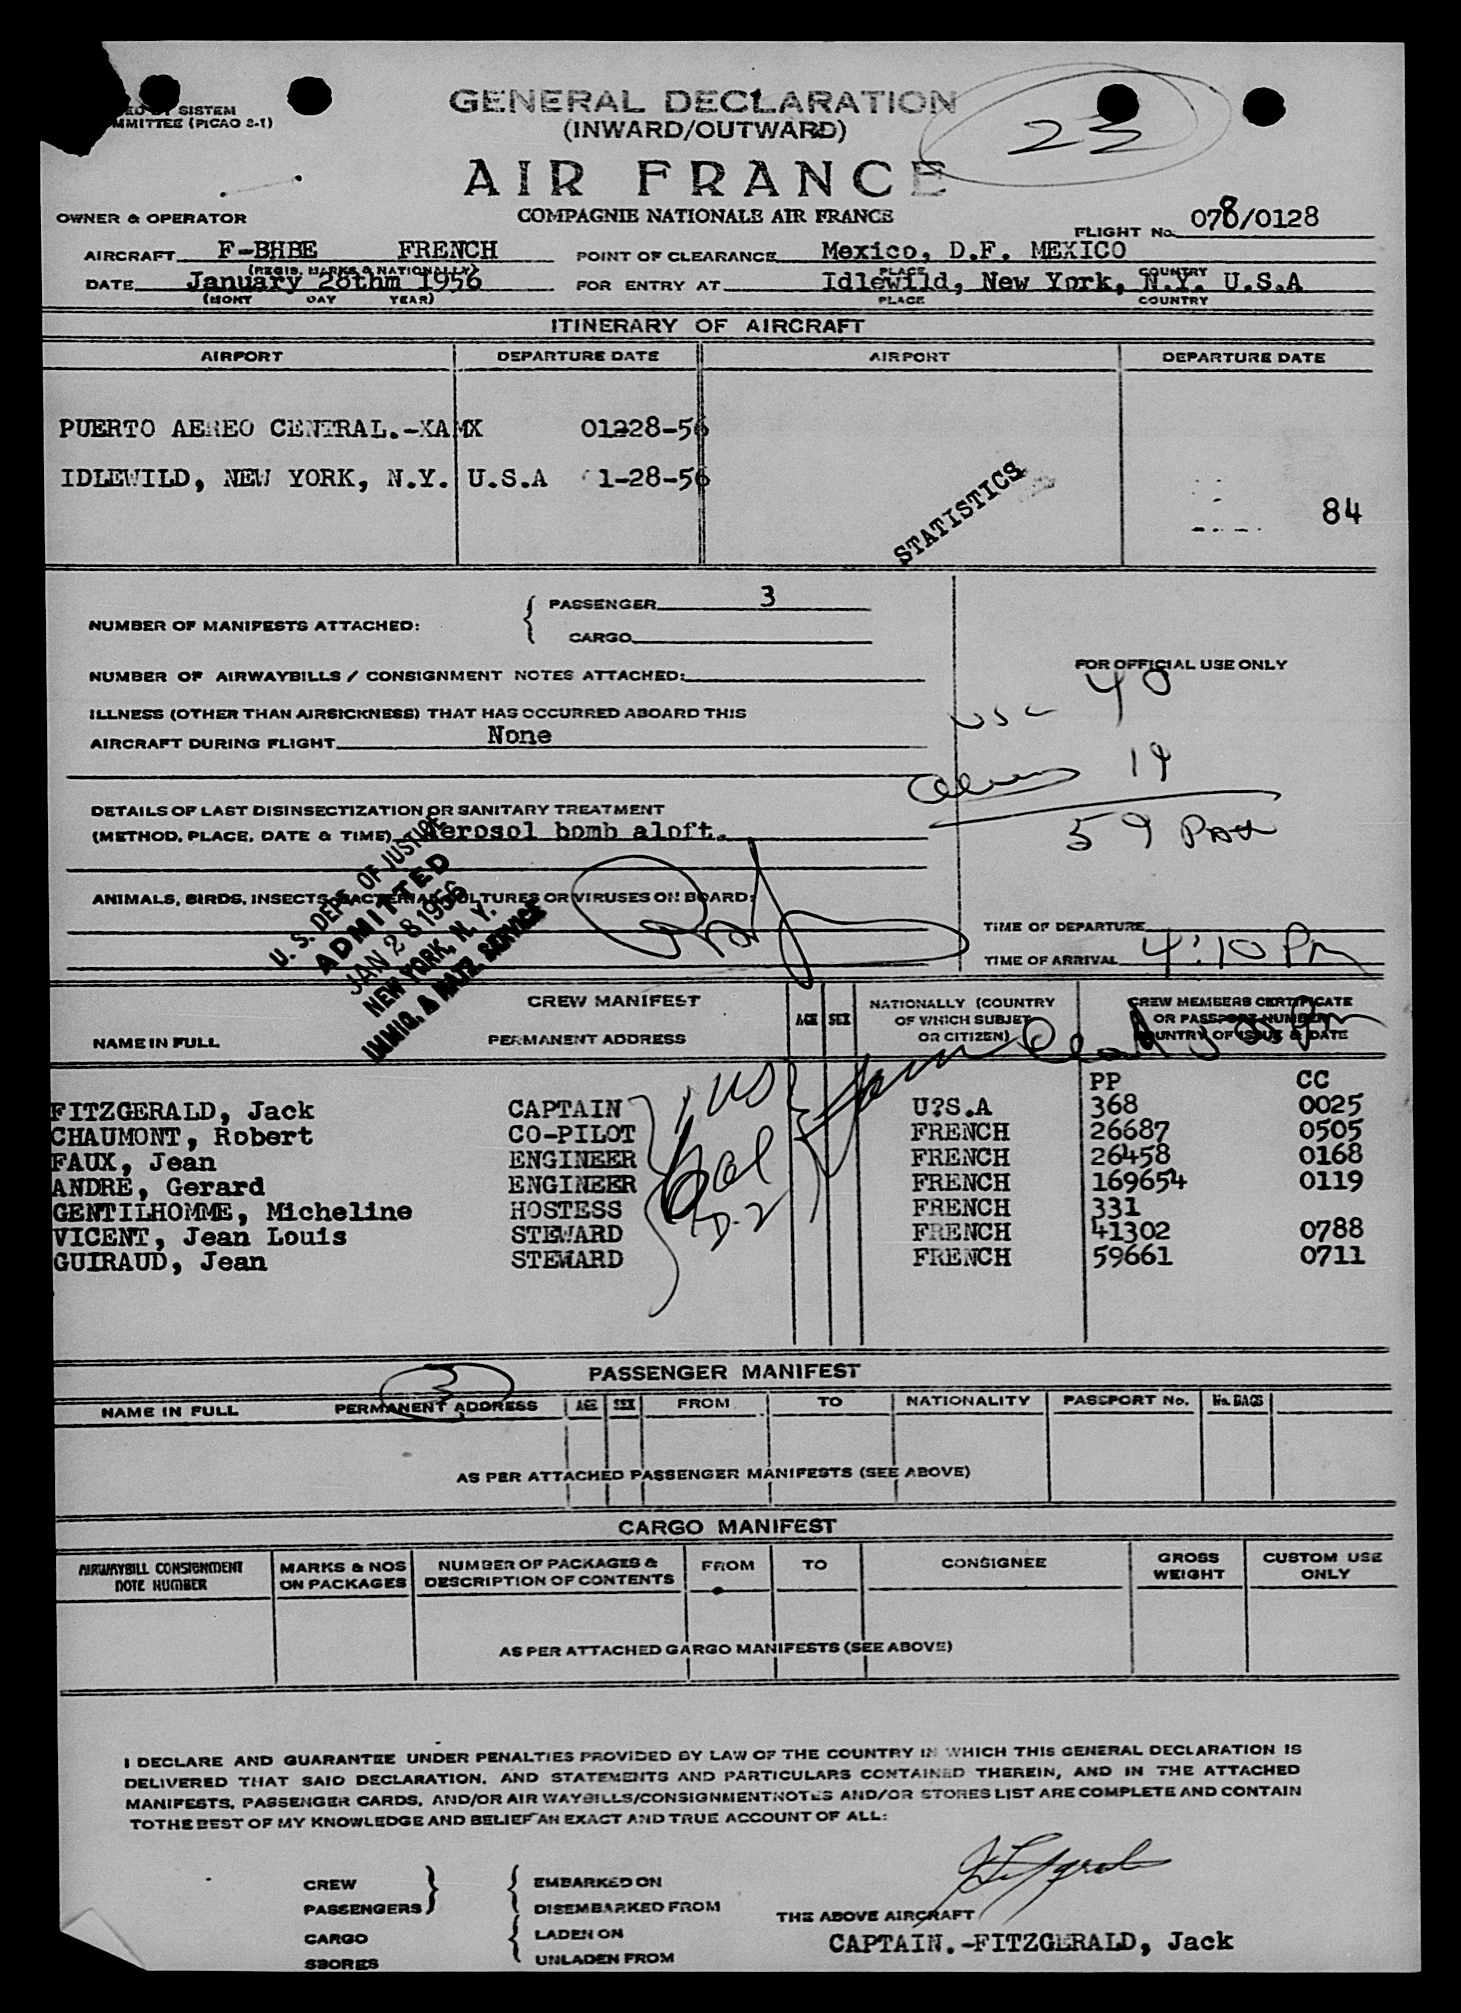 SISTEM
MMITTEE (PICAO 2-1)
GENERAL DECLARATION
(INWARD/OUTWARD)
23
AIR FRANCE
OWNER & OPERATOR
COMPAGNIE NATIONALE AIR FRANCE
FLIGHT No. 078/0128
AIRCRAFT F-BHBE FRENCH
POINT OF CLEARANCE Mexico, D.F. MEXICO
(REGIS. MARKS & NATIONALLY)
PLACE COUNTRY
DATE January 28thm 1956
FOR ENTRY AT Idlewild, New York, N.Y. U.S.A
(MONT DAY YEAR)
PLACE COUNTRY
ITINERARY OF AIRCRAFT
AIRPORT DEPARTURE DATE AIRPORT DEPARTURE DATE
PUERTO AEREO CENTRAL.-XAMX 01228-56
IDLEWILD, NEW YORK, N.Y. U.S.A 1-28-56
STATISTICS
84
NUMBER OF MANIFESTS ATTACHED:
PASSENGER 3
CARGO
NUMBER OF AIRWAYBILLS / CONSIGNMENT NOTES ATTACHED:
FOR OFFICIAL USE ONLY
usc 40
ILLNESS (OTHER THAN AIRSICKNESS) THAT HAS OCCURRED ABOARD THIS
AIRCRAFT DURING FLIGHT None
aliens 19
59 Pax
DETAILS OF LAST DISINSECTIZATION OR SANITARY TREATMENT
(METHOD, PLACE, DATE & TIME) Aerosol bomb aloft.
ANIMALS, BIRDS, INSECTS, BACTERIA, CULTURES OR VIRUSES ON BOARD:
U. S. DEPT. OF JUSTICE
ADMITTED
JAN 28 1956
NEW YORK, N. Y.
IMMIG. & NATZ. SERVICE
TIME OF DEPARTURE
TIME OF ARRIVAL 4:10 Pm
CREW MANIFEST
NAME IN FULL
PERMANENT ADDRESS
AGE SEX
NATIONALLY (COUNTRY
OF WHICH SUBJET
OR CITIZEN)
CREW MEMBERS CERTIFICATE
OR PASSPORT NUMBER
COUNTRY OF ISSUE & DATE
PP CC
FITZGERALD, Jack CAPTAIN U?S.A 368 0025
CHAUMONT, Robert CO-PILOT FRENCH 26687 0505
FAUX, Jean ENGINEER FRENCH 26458 0168
ANDRE, Gerard ENGINEER FRENCH 169654 0119
GENTILHOMME, Micheline HOSTESS FRENCH 331
VICENT, Jean Louis STEWARD FRENCH 41302 0788
GUIRAUD, Jean STEWARD FRENCH 59661 0711
1 US
6 al
D-2
PASSENGER MANIFEST
3
NAME IN FULL PERMANENT ADDRESS AGE SEX FROM TO NATIONALITY PASSPORT No. No. BAGS
AS PER ATTACHED PASSENGER MANIFESTS (SEE ABOVE)
CARGO MANIFEST
AIRWAYBILL CONSIGNMENT
NOTE NUMBER
MARKS & NOS
ON PACKAGES
NUMBER OF PACKAGES &
DESCRIPTION OF CONTENTS
FROM
TO
CONSIGNEE
GROSS
WEIGHT
CUSTOM USE
ONLY
AS PER ATTACHED GARGO MANIFESTS (SEE ABOVE)
I DECLARE AND GUARANTEE UNDER PENALTIES PROVIDED BY LAW OF THE COUNTRY IN WHICH THIS GENERAL DECLARATION IS
DELIVERED THAT SAID DECLARATION, AND STATEMENTS AND PARTICULARS CONTAINED THEREIN, AND IN THE ATTACHED
MANIFESTS, PASSENGER CARDS, AND/OR AIR WAYBILLS/CONSIGNMENTNOTES AND/OR STORES LIST ARE COMPLETE AND CONTAIN
TOTHE BEST OF MY KNOWLEDGE AND BELIEF AN EXACT AND TRUE ACCOUNT OF ALL:
CREW
PASSENGERS
EMBARKED ON
DISEMBARKED FROM
THE ABOVE AIRCRAFT
CARGO
SBORES
LADEN ON
UNLADEN FROM
CAPTAIN.-FITZGERALD, Jack